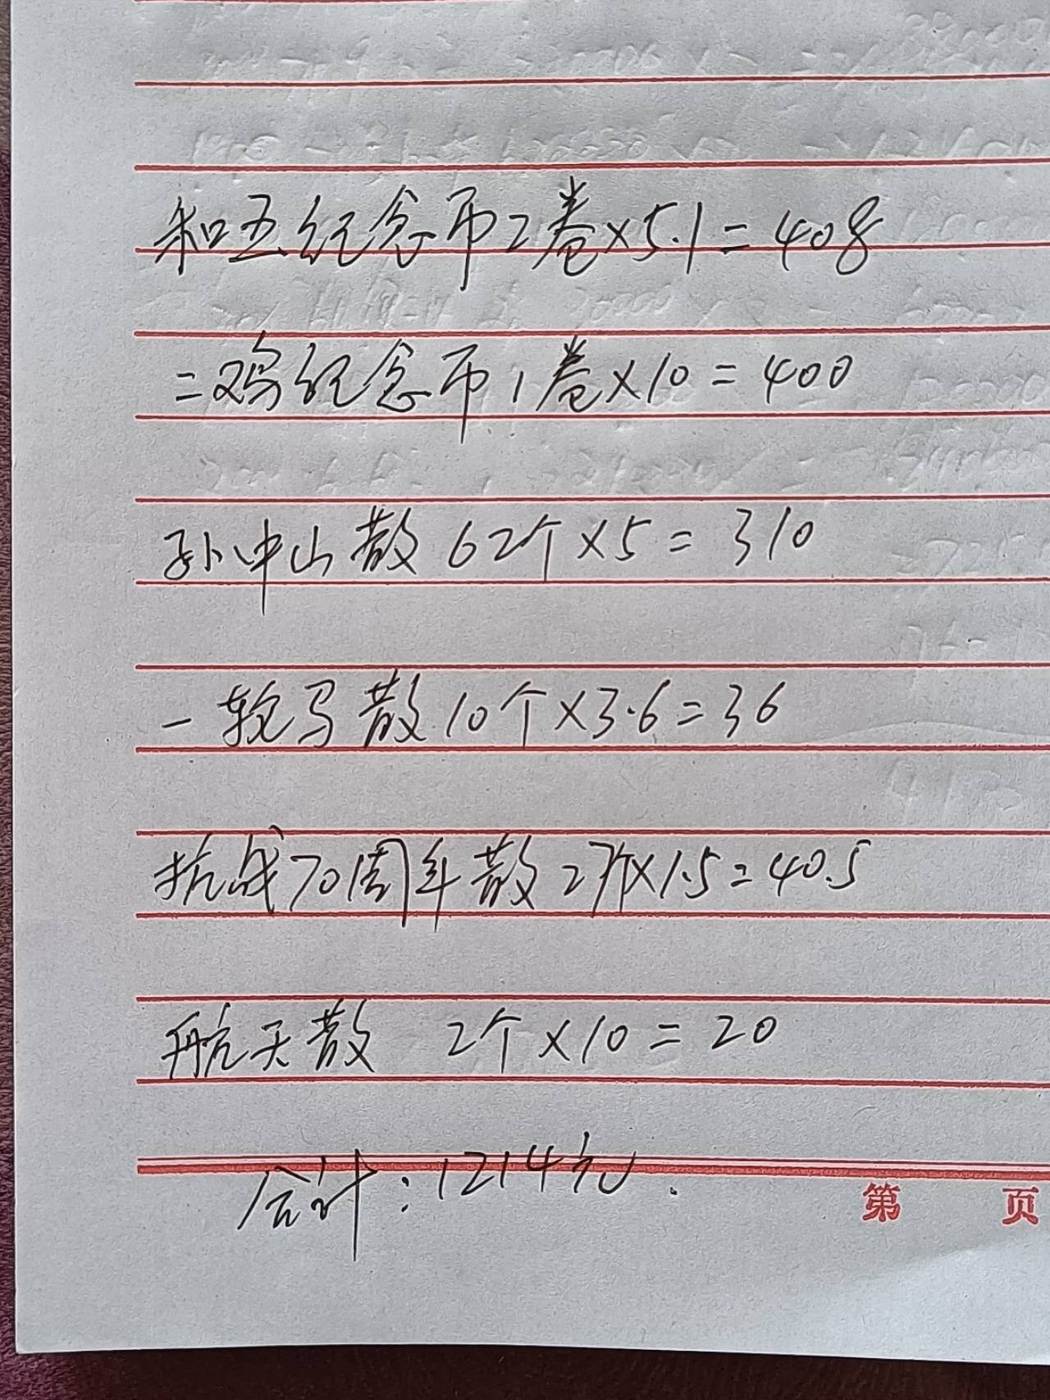 和五纪念币2卷×5.1=408
二鸡纪念币1卷×10=400
孙中山散 62个×5=310
一轮马散10个×3.6=36
抗战70周年散27个×1.5=40.5
航天散 2个×10=20
合计:1214元.
第 页